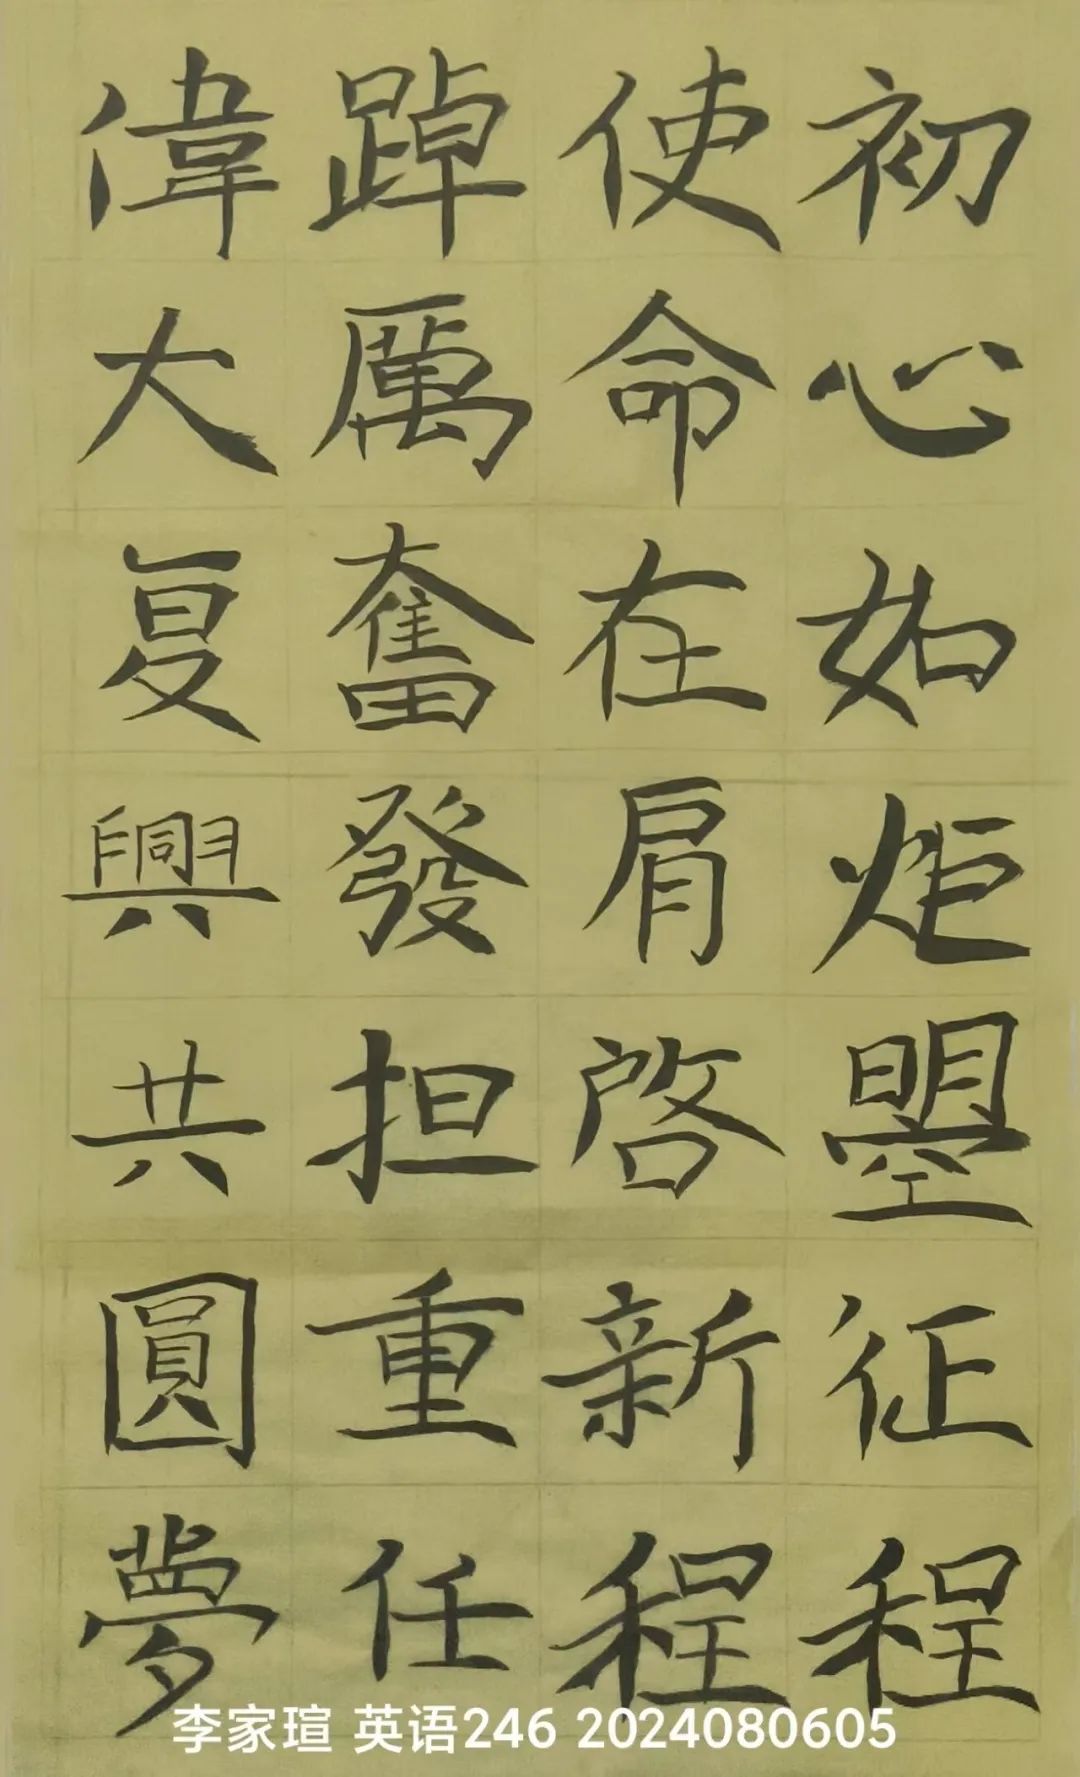 初心如炬曌征程
使命在肩啓新程
踔厲奮發担重任
偉大复興共圓夢
李家瑄 英语246 2024080605